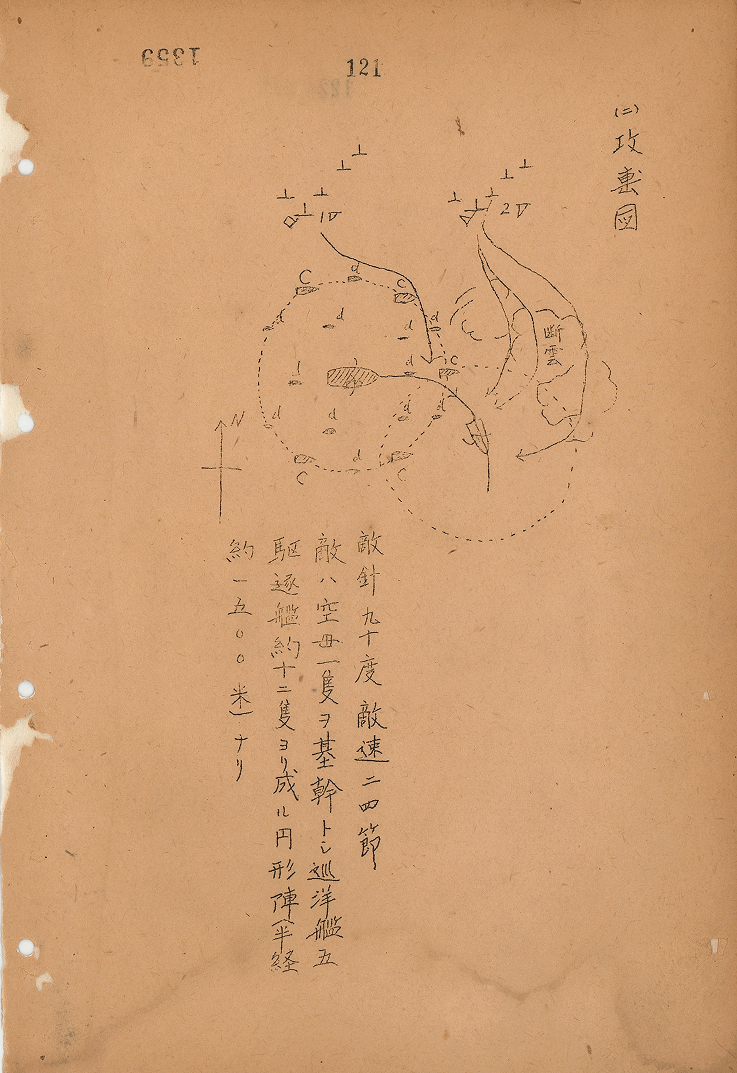 1359
121
(二)攻撃図
1D
2D
C
d
C
d
d
d
d
断雲
d
d
C
d
d
d
d
d
C
C
N
敵針九十度敵速二四節
敵ハ空母一隻ヲ基幹トシ巡洋艦五
駆逐艦約十二隻ヨリ成ル円形陣(半経
約一五〇〇米)ナリ